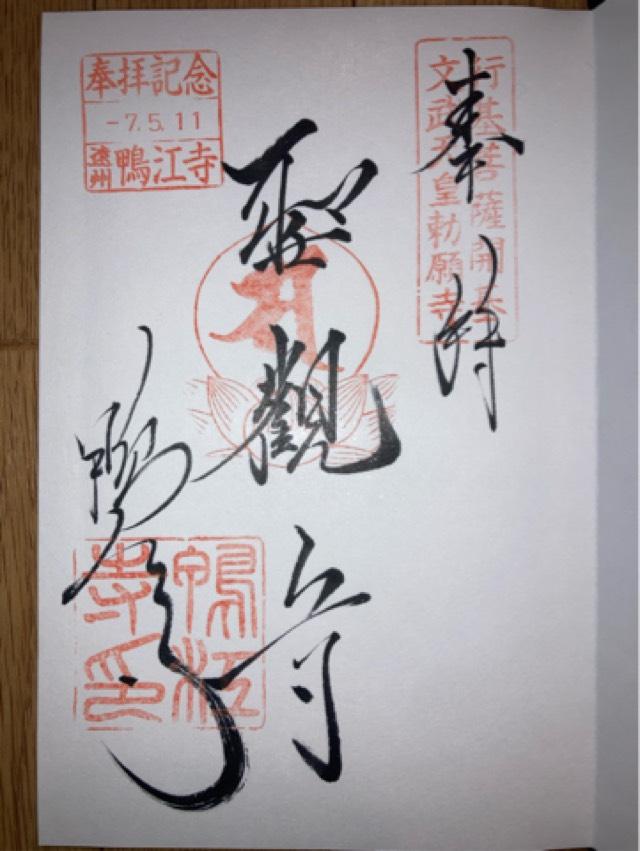 奉拝
行基菩薩開基
文武天皇勅願寺
聖観音
鴨江寺
奉拝記念
-7.5.11
遠州 鴨江寺
鴨江
寺印